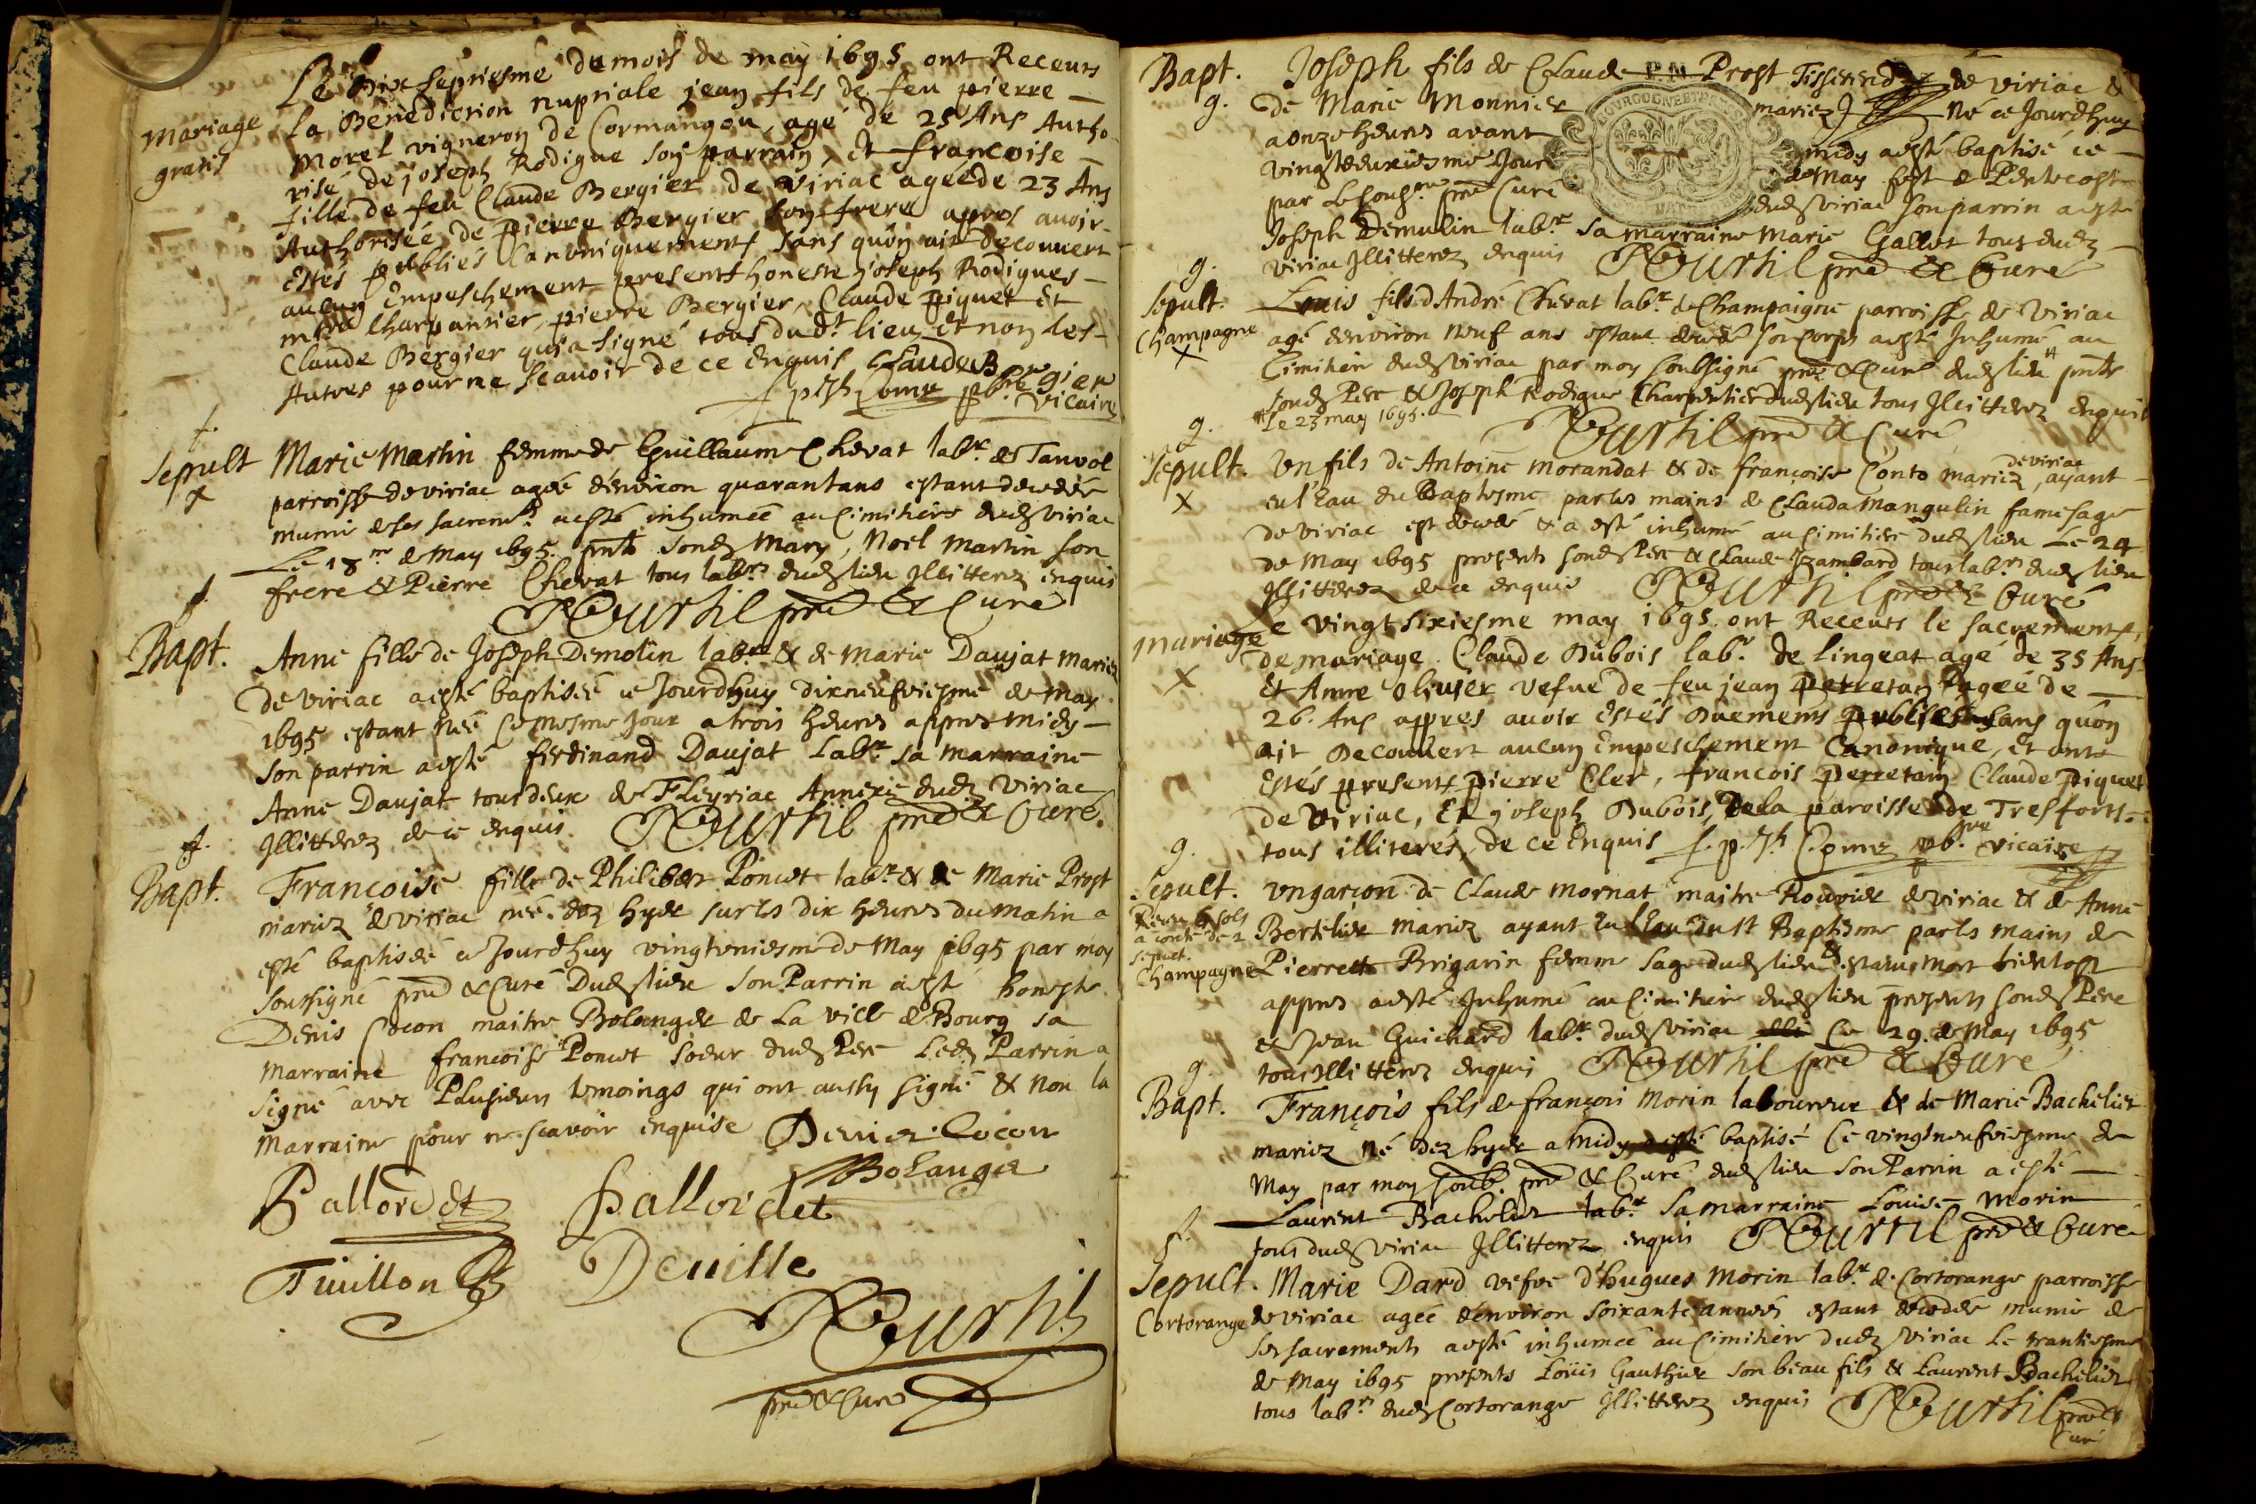 Mariage
gratis
Le Dix septiesme du mois de may 1695 ont Receus
la Benediction nuptiale jean fils de feu pierre
Morel vigneron de Cormangou, agé de 25 Ans Autho
risé de joseph Rodigue son parrain, Et francoise
fille de feu Claude Bergier de viriac ageé de 23 Ans
Authorisée de pierre Bergier son frere apres avoir
Estés publiés Canoniquement sans qu'on ait decouvert
aucun Empeschement presents honeste joseph Rodigues
mtre Charpantier, pierre Bergier, Claude piquet Et
Claude Bergier qui a signé tous dudt lieu, Et non les
Autres pour ne scavoir de ce Enquis Claude Bergier
pbre vicaire
Sepult
x
Marie Martin femme de Guillaume Chevat labr. de Tanvol
parroisse de viriac ageé d'environ quarantans estant decedée
munie de ses sacremts. a esté inhumeé au Cimitiere dud viriac
Le 18me de May 1695. pnts sond Mary, Noel Martin son
frere & Pierre Chevat tous labrs dud lieu Illitterez enquis
Curtil pre & Curé
Bapt.
Anne fille de Joseph Demolin labr. & de Marie Daujat mariez
de viriac a esté baptiseé ce Jourdhuy dixneufviesme de May
1695 estant neé ce mesme Jour a trois heures appres midy
son parrin a esté ferdinand Daujat Labr. sa marraine
Anne Daujat tous deux de Fleyriac Annexe dud viriac
Illitterez de ce enquis. Curtil pre & Curé.
Bapt.
Françoise fille de Philibert Poncet labr. & de Marie Prost
mariez de viriac neé dez hyer sur les dix heures du matin a
esté baptiseé ce Jourdhuy vingtuniesme de May 1695 par moy
soussigné pre & Curé Dud lieu son Parrin a esté honeste
Denis Cocon maitre Bolanger de La ville de Bourg sa
marraine francoise Poncet soeur dud Pere Led Parrin a
signé avec Plusieurs temoings qui ont aussy signé & non la
Marraine pour ne scavoir enquise Denis Cocon
Bolanger
Pallordet Pallordet
Tuillon Deville
Curtil
pre & Curé
Bapt.
g.
Joseph fils de Claude Prost Tisserend de viriac &
de Marie Monnier mariez né ce Jourdhuy
a onze heures avant midy a esté baptisé ce
vingtdeuxiesme Jour de May fest de Pentecoste
par le soubs. pre Curé dud viriac son parrin a esté
Joseph Demulin labr. sa marraine Marie Gallet tous dud
viriac Illitterez enquis Curtil pre & Curé
g.
Sepult.
Champagne
x
Louis fils d'André Chevat labr. de Champaigne parroisse de viriac
agé d'environ neuf ans estant decedé son corps a esté Inhumé au
Cimitiere dud viriac par moy soussigné pre & Curé dud lieu pnts
sond Pere & Joseph Rodigue Charpentier dud lieu tous Illitterez enquis
Le 23 may 1695. Curtil pre & Curé
g.
Sepult.
x
Un fils de Antoine Morandat & de françoise Conto mariez de viriac, ayant
eu l'Eau du Baptesme par les mains de Clauda Mangulin fame sage
de viriac est decedé & a esté inhumé au Cimitiere dud lieu Le 24
de May 1695 presents sond Pere & Claude Jzambard tous labrs dud lieu
Illitterez de ce enquis Curtil pre & Curé
mariage
x
Le vingt sixiesme may 1695. ont Receus le sacrement
de mariage Claude Dubois labr. de lingeat agé de 35 Ans
Et Anne olivier vefue de feu jean perretan ageé de
26. Ans appres avoir Estés Duement publiés sans qu'on
ait Decouvert aucun Empeschement Canonique, Et ont
Estés presents pierre Cler, francois perretain Claude piquet
de viriac, Et joseph Dubois, de la paroisse de Treffort
tous illiterés, de ce Enquis pbre vicaire
g.
Sepult.
Champagne
Un garçon de Claude Mornat maitre Rouvier de viriac & de Anne
Bertelier mariez ayant eu l'Eau du st Baptesme par les mains de
Pierrette Brigarin femme sage dud lieu & estant mort bientost
appres a esté Inhumé au Cimitiere dud lieu presents sond Pere
& Jean Guichard labr. dud viriac Ce 29. de May 1695
tous Illitterez enquis Curtil pre & Curé
g.
Bapt.
François fils de françois Morin laboureur & de Marie Bachelier
mariez né dez hyer a midy a esté baptisé Ce vingtneufviesme de
May par moy soub. pre & Curé dud lieu son Parrin a esté
Laurent Bachelier labr. sa marraine Louise Morin
tous dud viriac Illitterez enquis Curtil pre & Curé
Sepult.
Cortorange
Marie Dard vefve d'hugues Morin labr. de Cortorange parroisse
de viriac ageé d'environ soixante anneés estant decedée munie de
ses sacrements a esté inhumeé au Cimitiere dud viriac Le trantiesme
de May 1695 presents Loüis Gauthier son beau fils & Laurent Bachelier
tous labrs dud Cortorange Illitterez enquis Curtil pre &
Curé